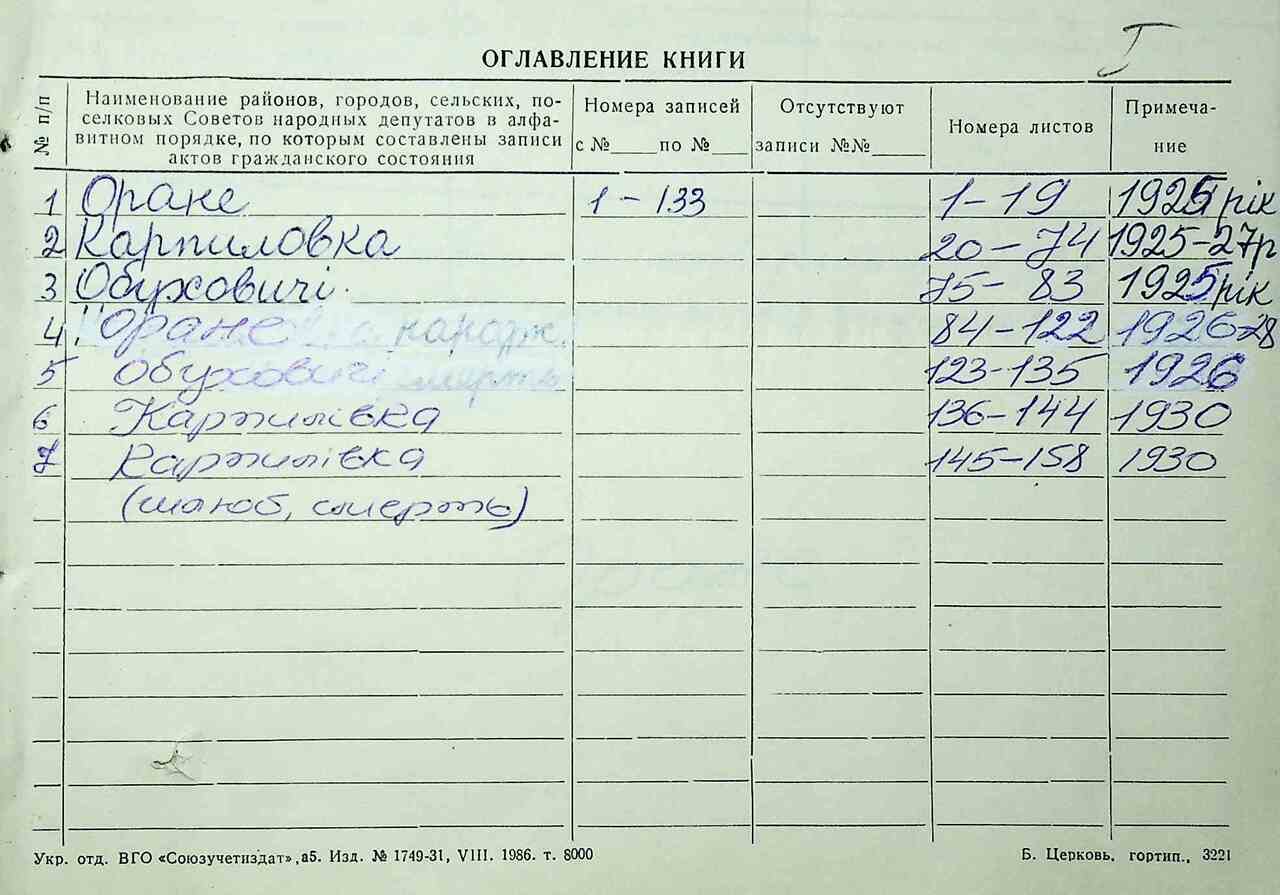 I
ОГЛАВЛЕНИЕ КНИГИ
№ п/п
Наименование районов, городов, сельских, по-
селковых Советов народных депутатов в алфа-
витном порядке, по которым составлены записи
актов гражданского состояния
Номера записей
с №____ по №____
Отсутствуют
записи №№____
Номера листов
Примеча-
ние
1 Оране 1 - 133 1-19 1925 рік
2 Карпиловка 20-74 1925-27р
3 Обуховичі. 75-83 1925 рік
4 Оране народж. 84-122 1926-28
5 Обуховичі смерть 123-135 1926
6 Карпилівка 136-144 1930
7 Карпилівка 145-158 1930
(шлюб, смерть)
Укр. отд. ВГО «Союзучетиздат», а5. Изд. № 1749-31, VIII. 1986. т. 8000
Б. Церковь, гортип., 3221